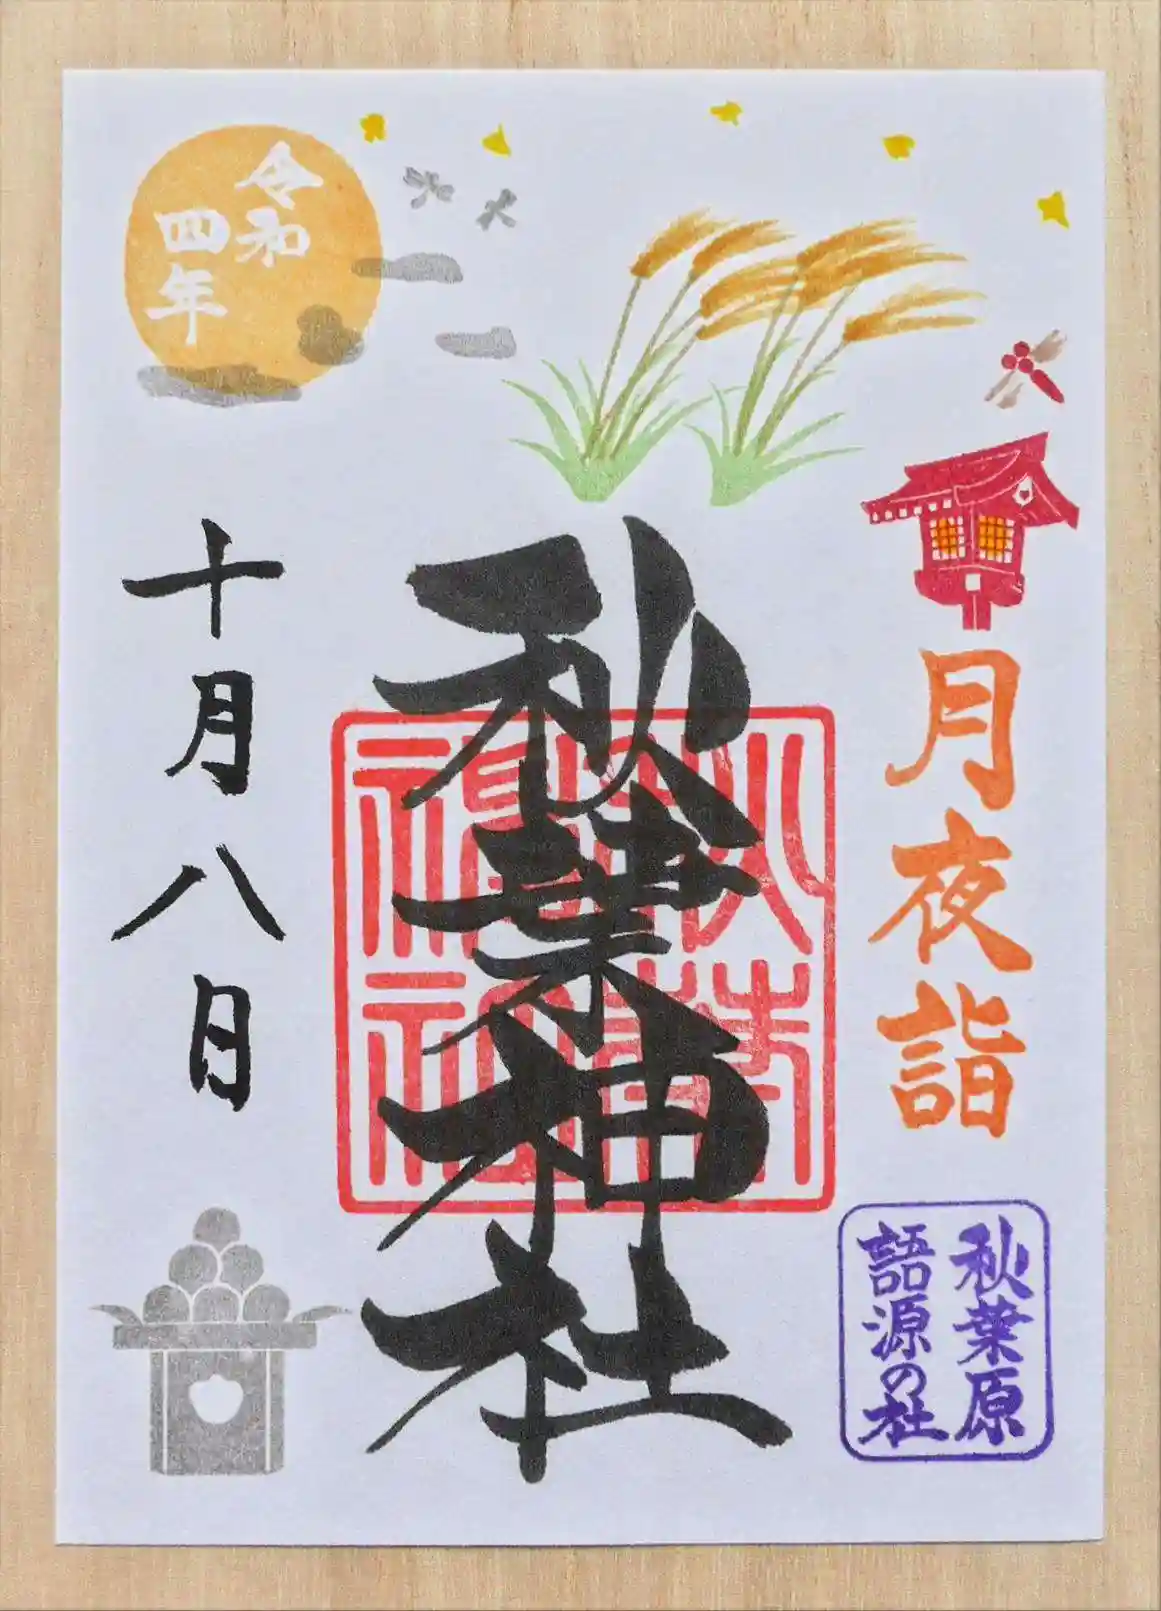 月夜詣
秋葉原
語源の社
秋葉神社
秋葉
神社
令和
四年
十月八日